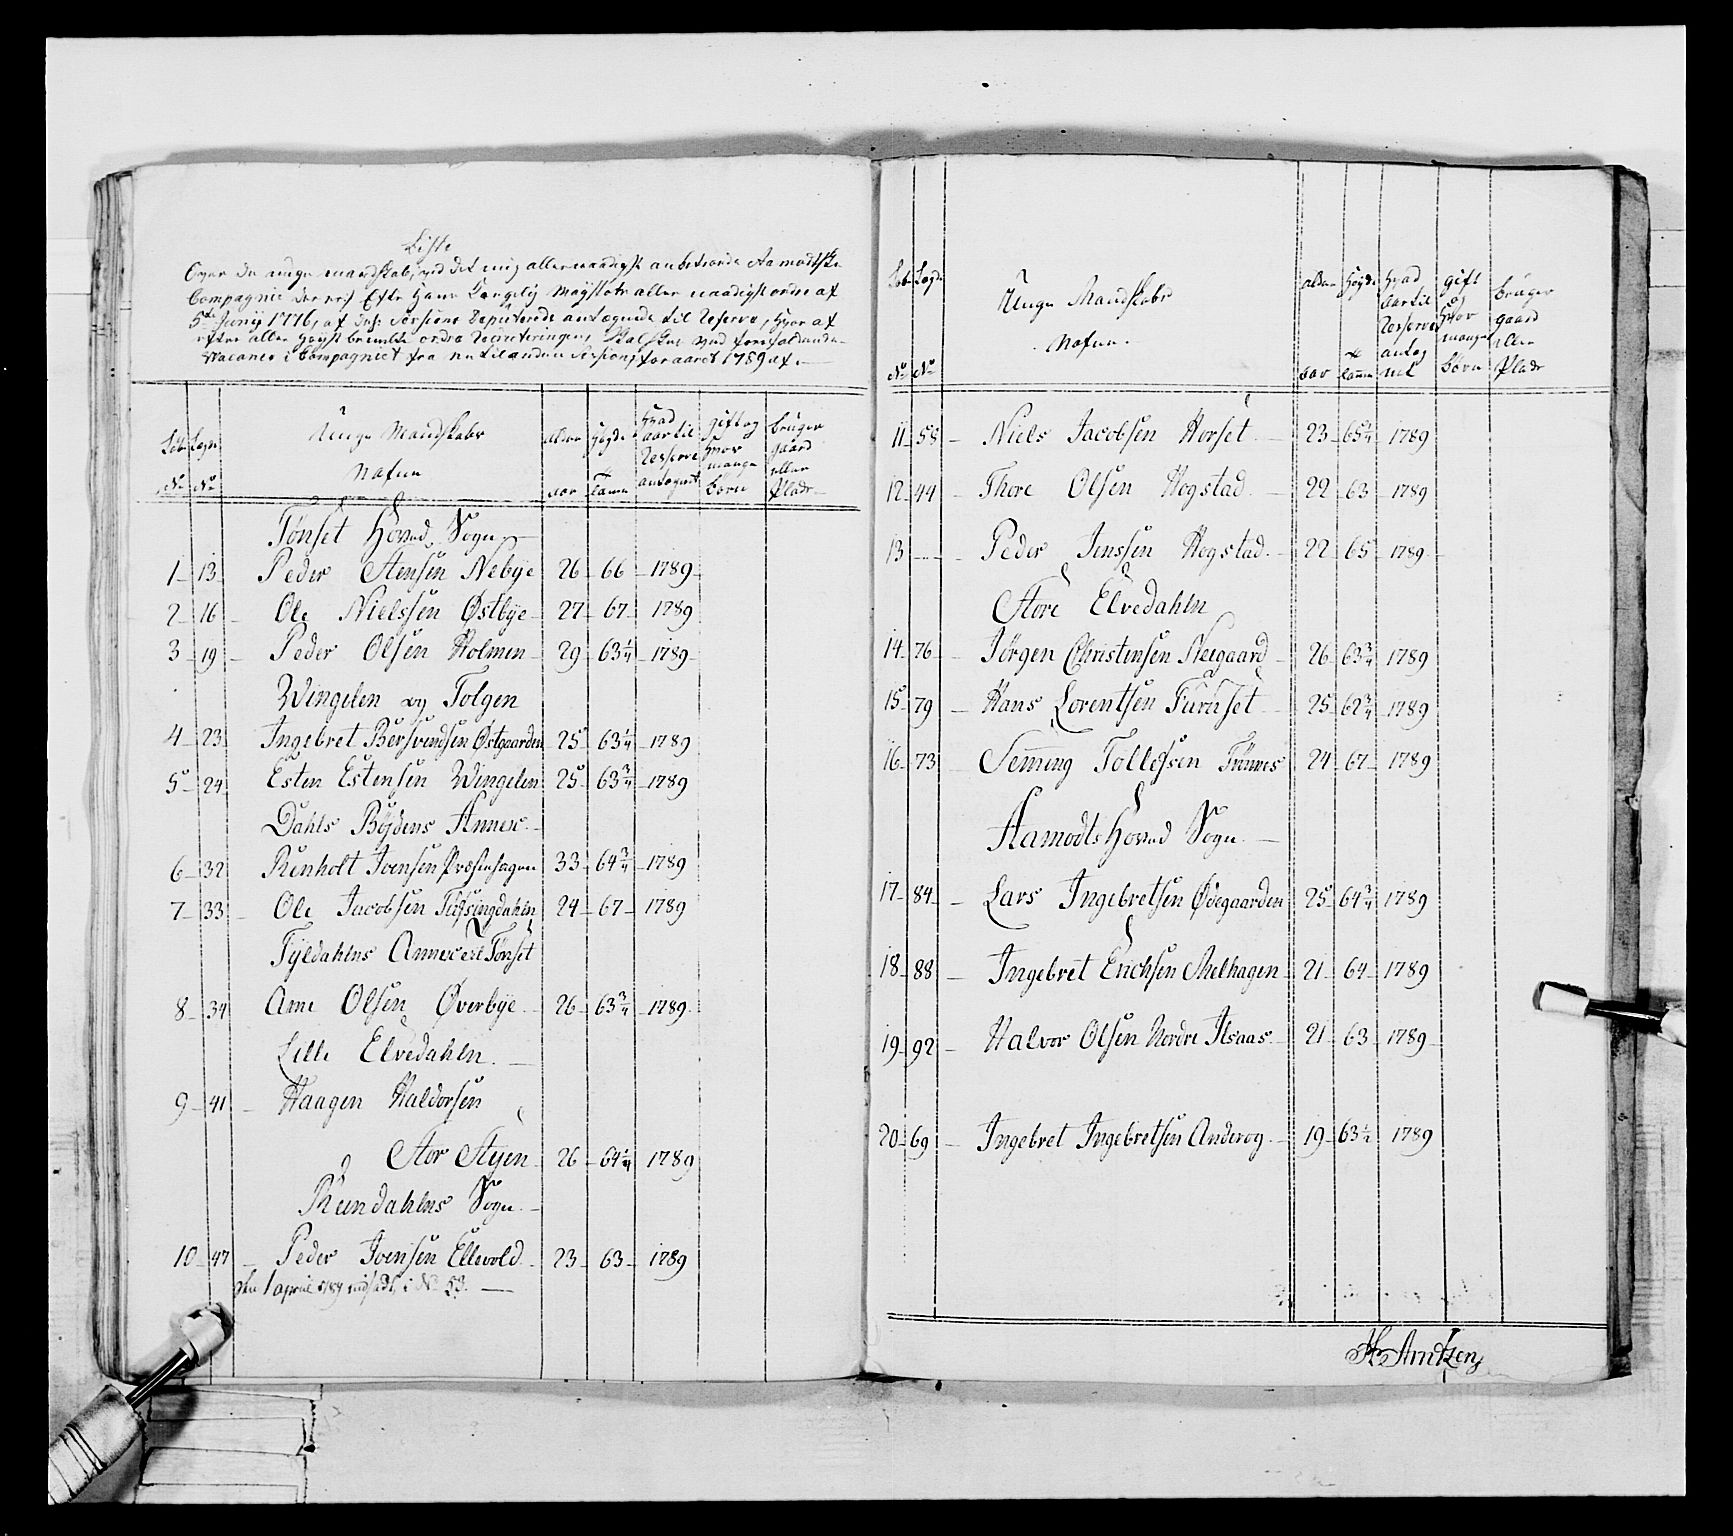 Liste
Over de unge mandskab, ved det mig allernaadigst anbetroede Aamodtske
Compagnie der ere Efter Hans Kongelig Mayestets aller naadigst ordre af
5te Junii 1776, af Sessions Deputerede antegnede til Reserve, hvor af
efter aller høyst bemelte ordre Recruteringen, skal skee ved forefaldende
Vacance i Compagniet fra en til anden Session, for aaret 1789 af
Lob Lægds Unge Mandskabs alder høyde hvad gift og bruger
aar til hvor gaard
Reserve mange eller
No No Nafne aar Tomm antagnet børn Plads
Tønset Hoved Sogn
1 13 Peder Stensen Nebye 26 66 1789
2 16 Ole Nielssen Østbye 27 67 1789
3 19 Peder Olsen Holmen 29 63 1/4 1789
Wingelen og Tolgen
4 23 Ingebret Bersvendsen Østgaarden 25 63 1/4 1789
5 24 Esten Estensen Wingelen 25 63 3/4 1789
Dahls Bøjdens Annex
6 32 Reinholt Joensen 33 64 3/4 1789
7 33 Ole Jacobsen Tufsingdahln 24 67 1789
Tyldahlns Annex til Tønset
8 34 Arne Olsen Øverbye 26 63 3/4 1789
Lille Elvedahln
9 41 Haagen Haldorsen
Stor Styen 26 64 1/4 1789
Rendahlns Sogn
10 47 Peder Joensen Ellevold 23 63 1789
den 1 april 1789 indsadt i No 53
Lob Lægds Unge Mandskabs alder høyde hvad gift bruger
aar til og gaard
Reserve hvor eller
Nafne antag mange
No No aar Tomm net børn Plads
11 58 Niels Jacobsen Horset 23 65 1/4 1789
12 44 Thore Olsen Hogstad 22 63 1789
13 Peder Jenssen Hogstad 22 65 1789
Store Elvedahln
14 76 Jørgen Christensen Neegaard 26 63 3/4 1789
15 79 Hans Lorentsen Furuset 25 62 3/4 1789
16 73 Semming Tollefsen 24 67 1789
Aamodts Hoved Sogn
17 84 Lars Ingebretsen Ødegaarden 25 64 3/4 1789
18 88 Ingebret Erichsen Melhagen 21 64 1789
19 92 Halvor Olsen Nordre Ilsaas 21 63 1789
20 69 Ingebret Ingebretsen Anderog 19 63 1/2 1789
H Arntzen